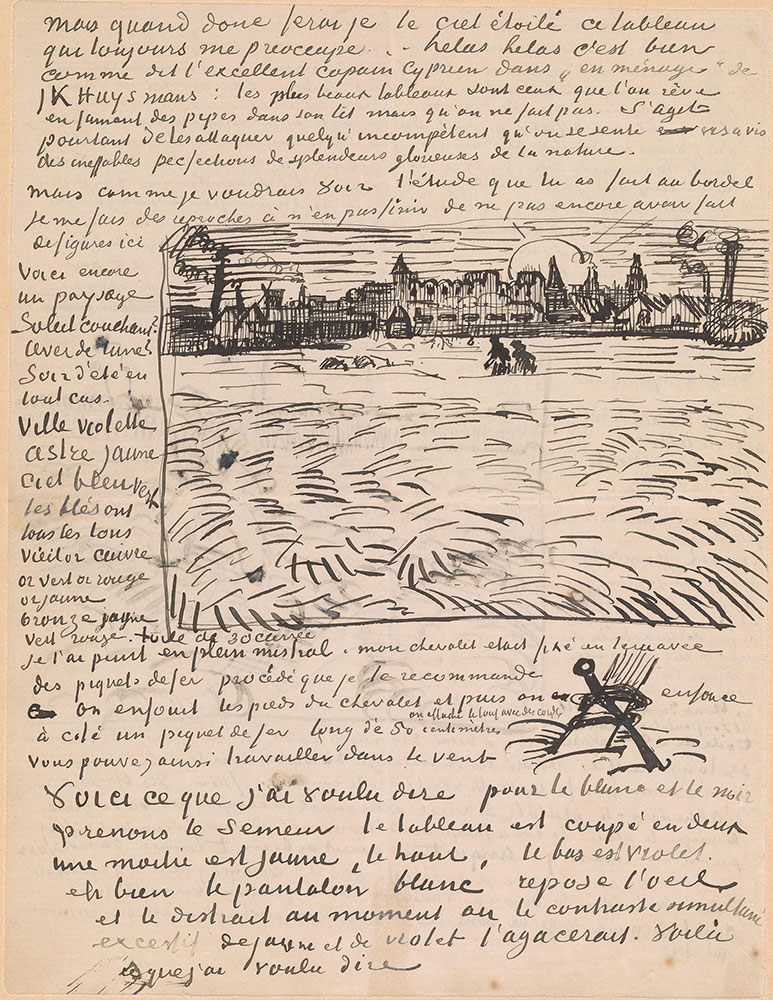 mais quand donc ferai je le ciel étoilé ce tableau
qui toujours me préoccupe. – hélas hélas c'est bien
comme dit l'excellent copain Cyprien dans „en ménage" de
JK Huysmans: les plus beaux tableaux sont ceux que l'on rêve
en fumant des pipes dans son lit mais qu'on ne fait pas. S'agit
pourtant de les attaquer quelqu'incompétent qu'on se sente vis à vis
des ineffables perfections de splendeurs glorieuses de la nature.
mais comme je voudrais voir l'étude que tu as fait au bordel
Je me fais des reproches à n'en pas finir de ne pas encore avoir fait
de figures ici
Voici encore
un paysage
Soleil couchant?
lever de lune?
Soir d'été en
tout cas.
Ville violette
astre jaune
Ciel bleu vert
les blés ont
tous les tons
vieil or cuivre
or vert or rouge
or jaune
bronze jaune
vert rouge. toile de 30 carrée
je l'ai peint en plein mistral. mon chevalet etait fixé en terre avec
des piquets de fer procédé que je te recommande
on enfouit les pieds du chevalet et puis on enfonce
à coté un piquet de fer long de 50 centimètres
on attache le tout avec des cordes
vous pouvez ainsi travailler dans le vent
Voici ce que j'ai voulu dire pour le blanc et le noir
prenons le Semeur le tableau est coupé en deux
une moitié est jaune, le haut, le bas est violet.
eh bien le pantalon blanc repose l'oeil
et le distrait au moment ou le contraste simultané
excessif de jaune et de violet l'agacerait. Voilà
ce que j'ai voulu dire